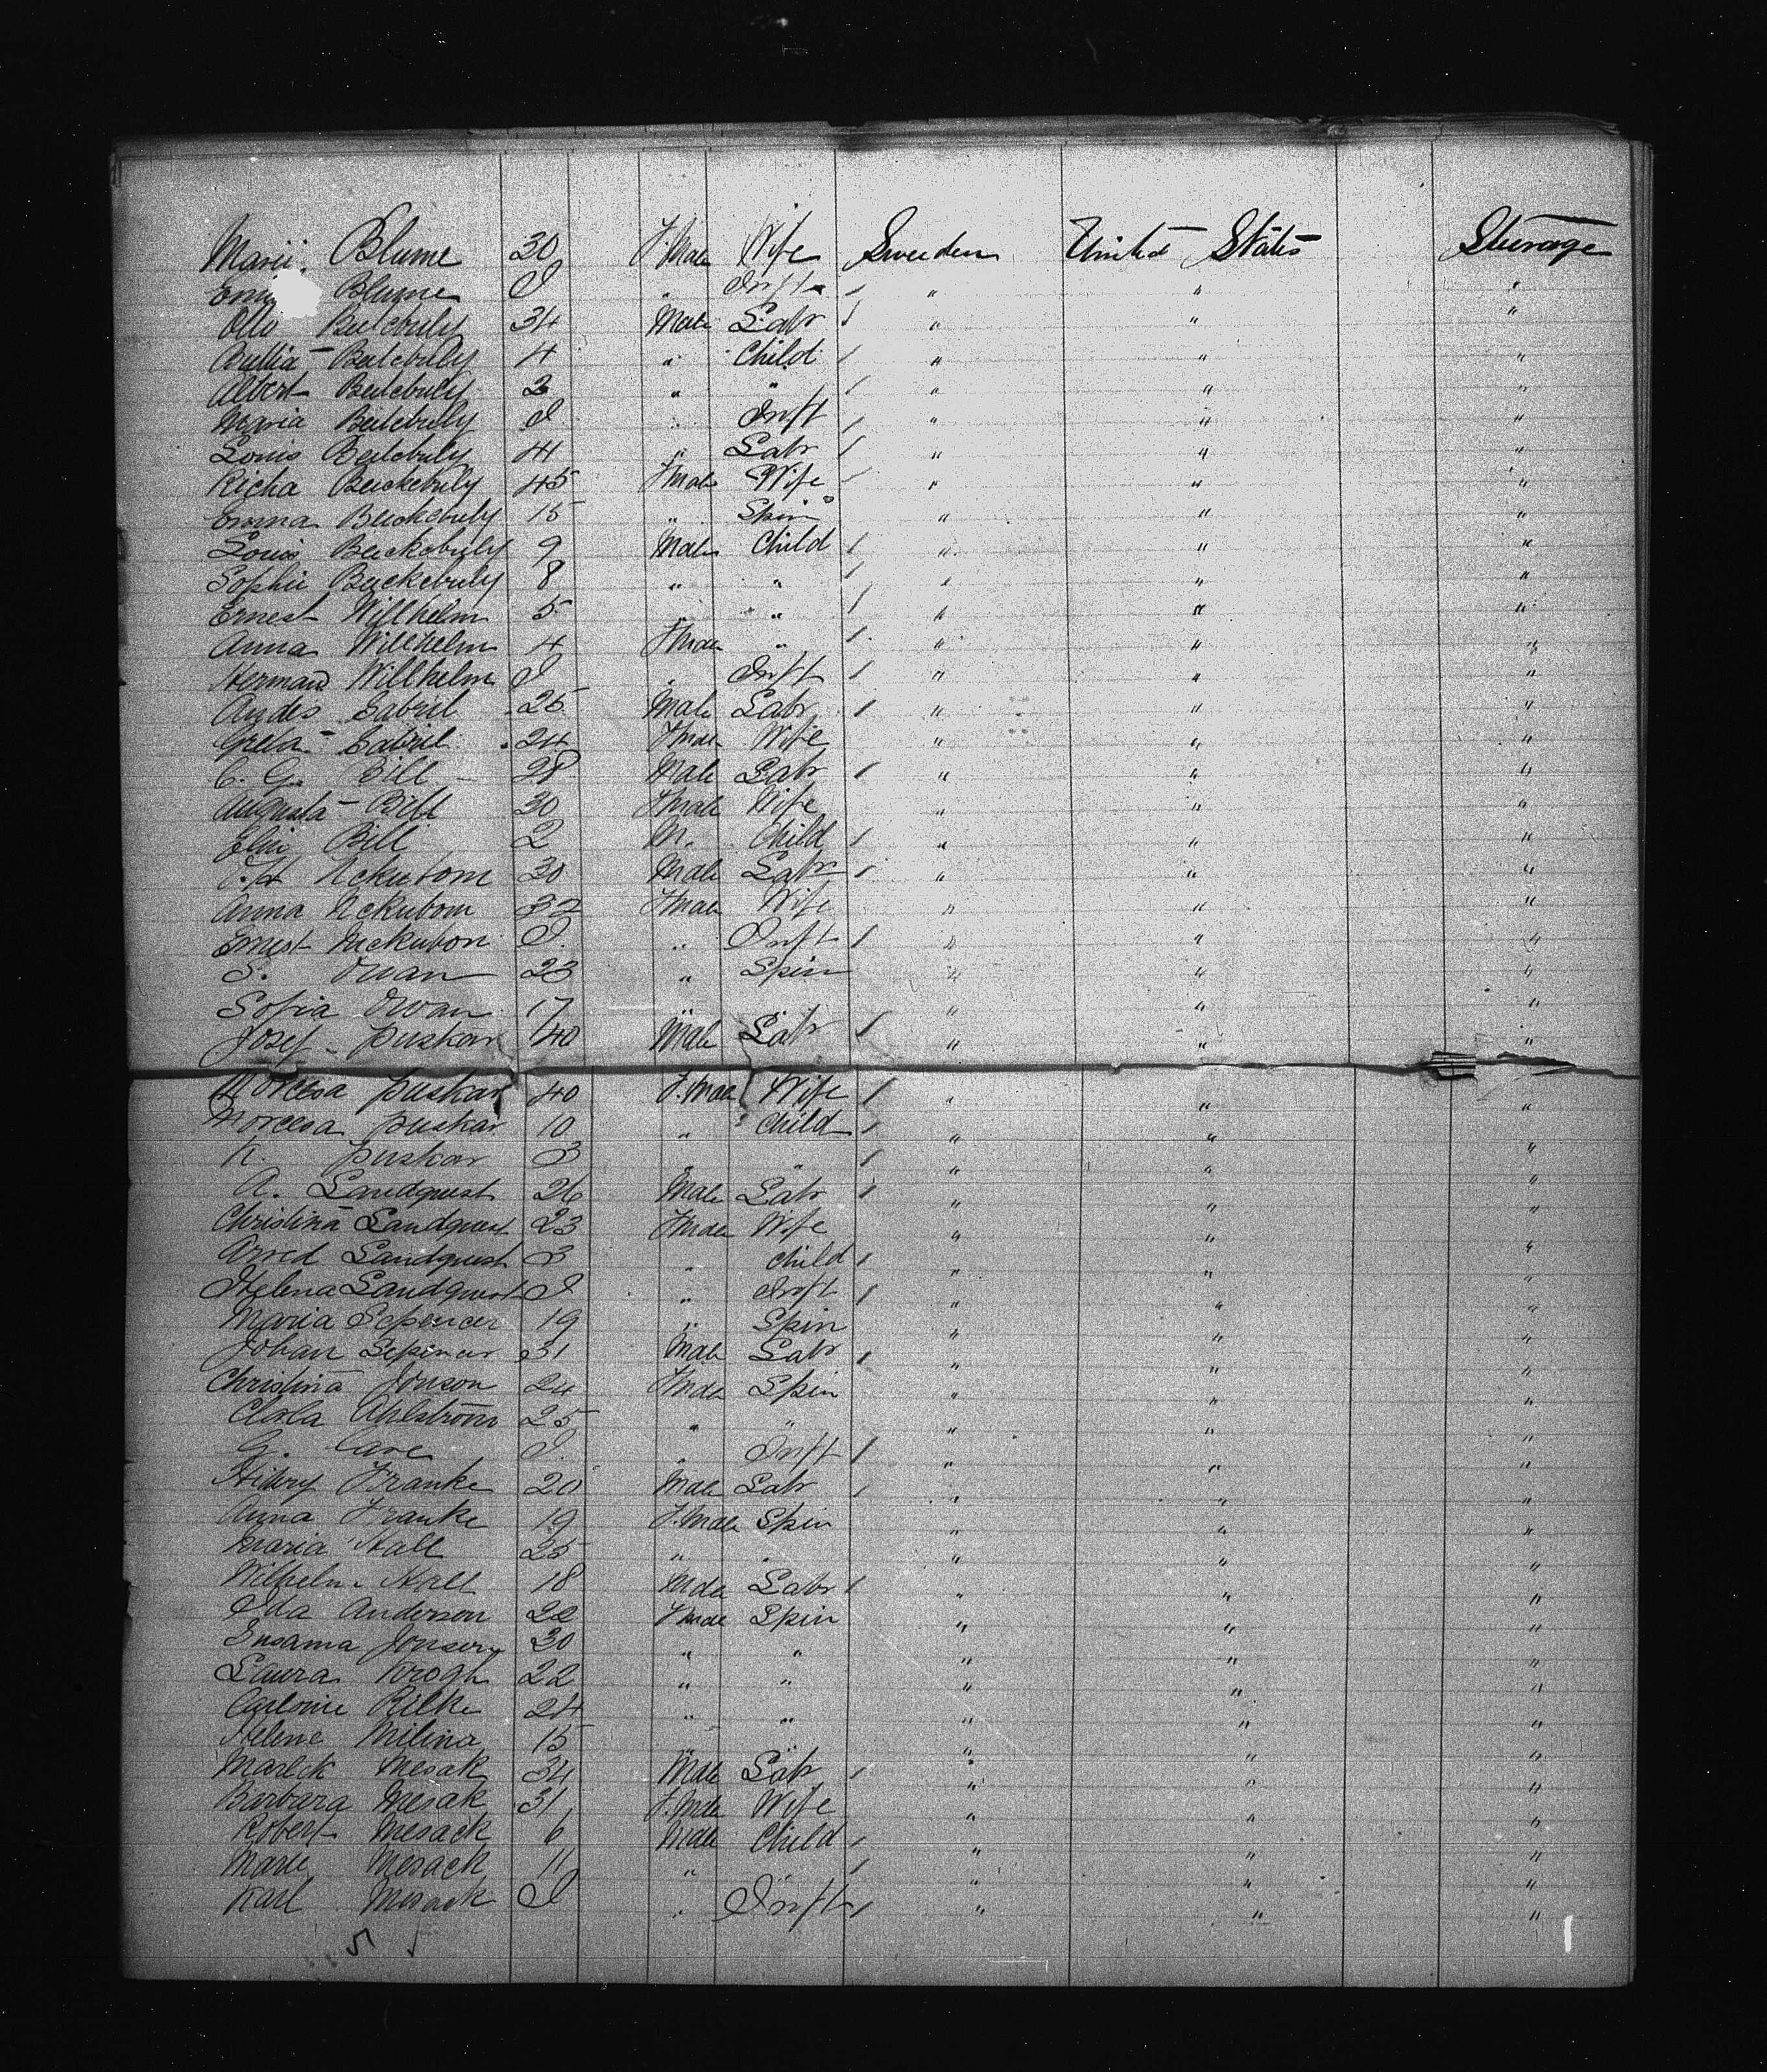 Marii Blume 30 F.Male Wife Sweden United States Steerage
Em Blume I " Inft " " "
Otto Beilebuly 34 Male Labr " " "
Beilebuly 4 " Child " " "
Albert Beilebuly 2 " " " " "
Maria Beilebuly I " Inft " " "
Louis Beilebuly 41 " Labr " " "
Richa Beickebuly 45 Fmale Wife " " "
Emma Beickebuly 15 " Spin " " "
Louis Beickebuly 9 Male Child " " "
Sophie Beickebuly 8 " " " " "
Ernest Willhelm 5 " " " " "
Anna Willhelm 4 Fmale " " " "
Herman Willhelm I " Inft " " "
Andes Gabriel 25 Male Labr " " "
Greta Gabriel 24 Fmale Wife " " "
C. G. Bill 28 Male Labr " " "
Augusta Bill 30 Fmale Wife " " "
Elin Bill 2 M. Child " " "
Nckubom 30 Male Labr " " "
Anna Nckubom 32 Fmale Wife " " "
Ernest Neckubon I. " Inft " " "
S. 23 " Spin " " "
Sofia 17 " " " " "
Josef Puskar 40 Male Labr " " "
Morcesa Puskar 40 F.Male Wife " " "
Morcesa Puskar 10 " Child " " "
K. Puskar 3 " " " " "
A. Landquist 26 Male Labr " " "
Christina Landquist 23 Fmale Wife " " "
Arved Landquist 3 " Child " " "
Helena Landquist I " Inft " " "
Maria Sepencer 19 " Spin " " "
Johan Sepencer 31 Male Labr " " "
Christina Jonson 24 Fmale Spin " " "
Clasla Ahlström 25 " " " " "
G. Care I. " Inft " " "
Franke 20 Male Labr " " "
Anna Franke 19 F.Male Spin " " "
Maria Hall 25 " " " " "
Wilhelm Hall 18 Male Labr " " "
Ida Anderson 22 Fmale Spin " " "
Susama Jonsen 30 " " " " "
Laura Krogh 22 " " " " "
Carlonie Rilke 24 " " " " "
Helene Milina 15 " " " " "
Mareck Mesak 34 Male Labr " " "
Barbara Mesak 31 F.Male Wife " " "
Robert Mesack 6 Male Child " " "
Marie Mesack 11 " " " " "
Karl Mesack I " Inft " " "
5 5